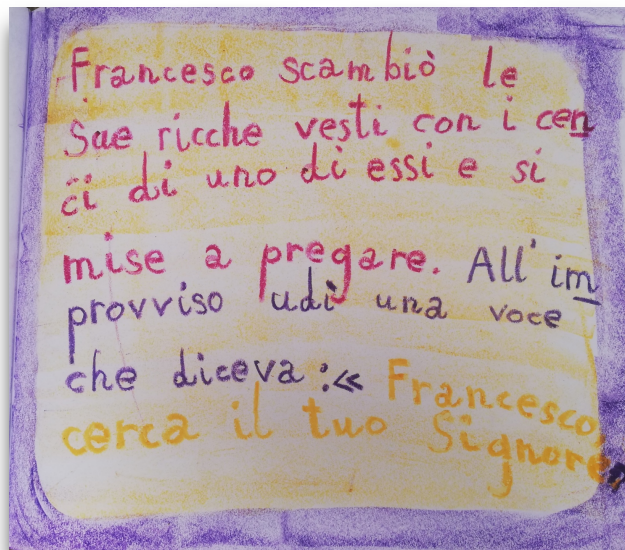 Francesco scambiò le
Sue ricche vesti con i cen
ci di uno di essi e si
mise a pregare. All'im
provviso udì una voce
che diceva :« Francesco,
cerca il tuo Signore,